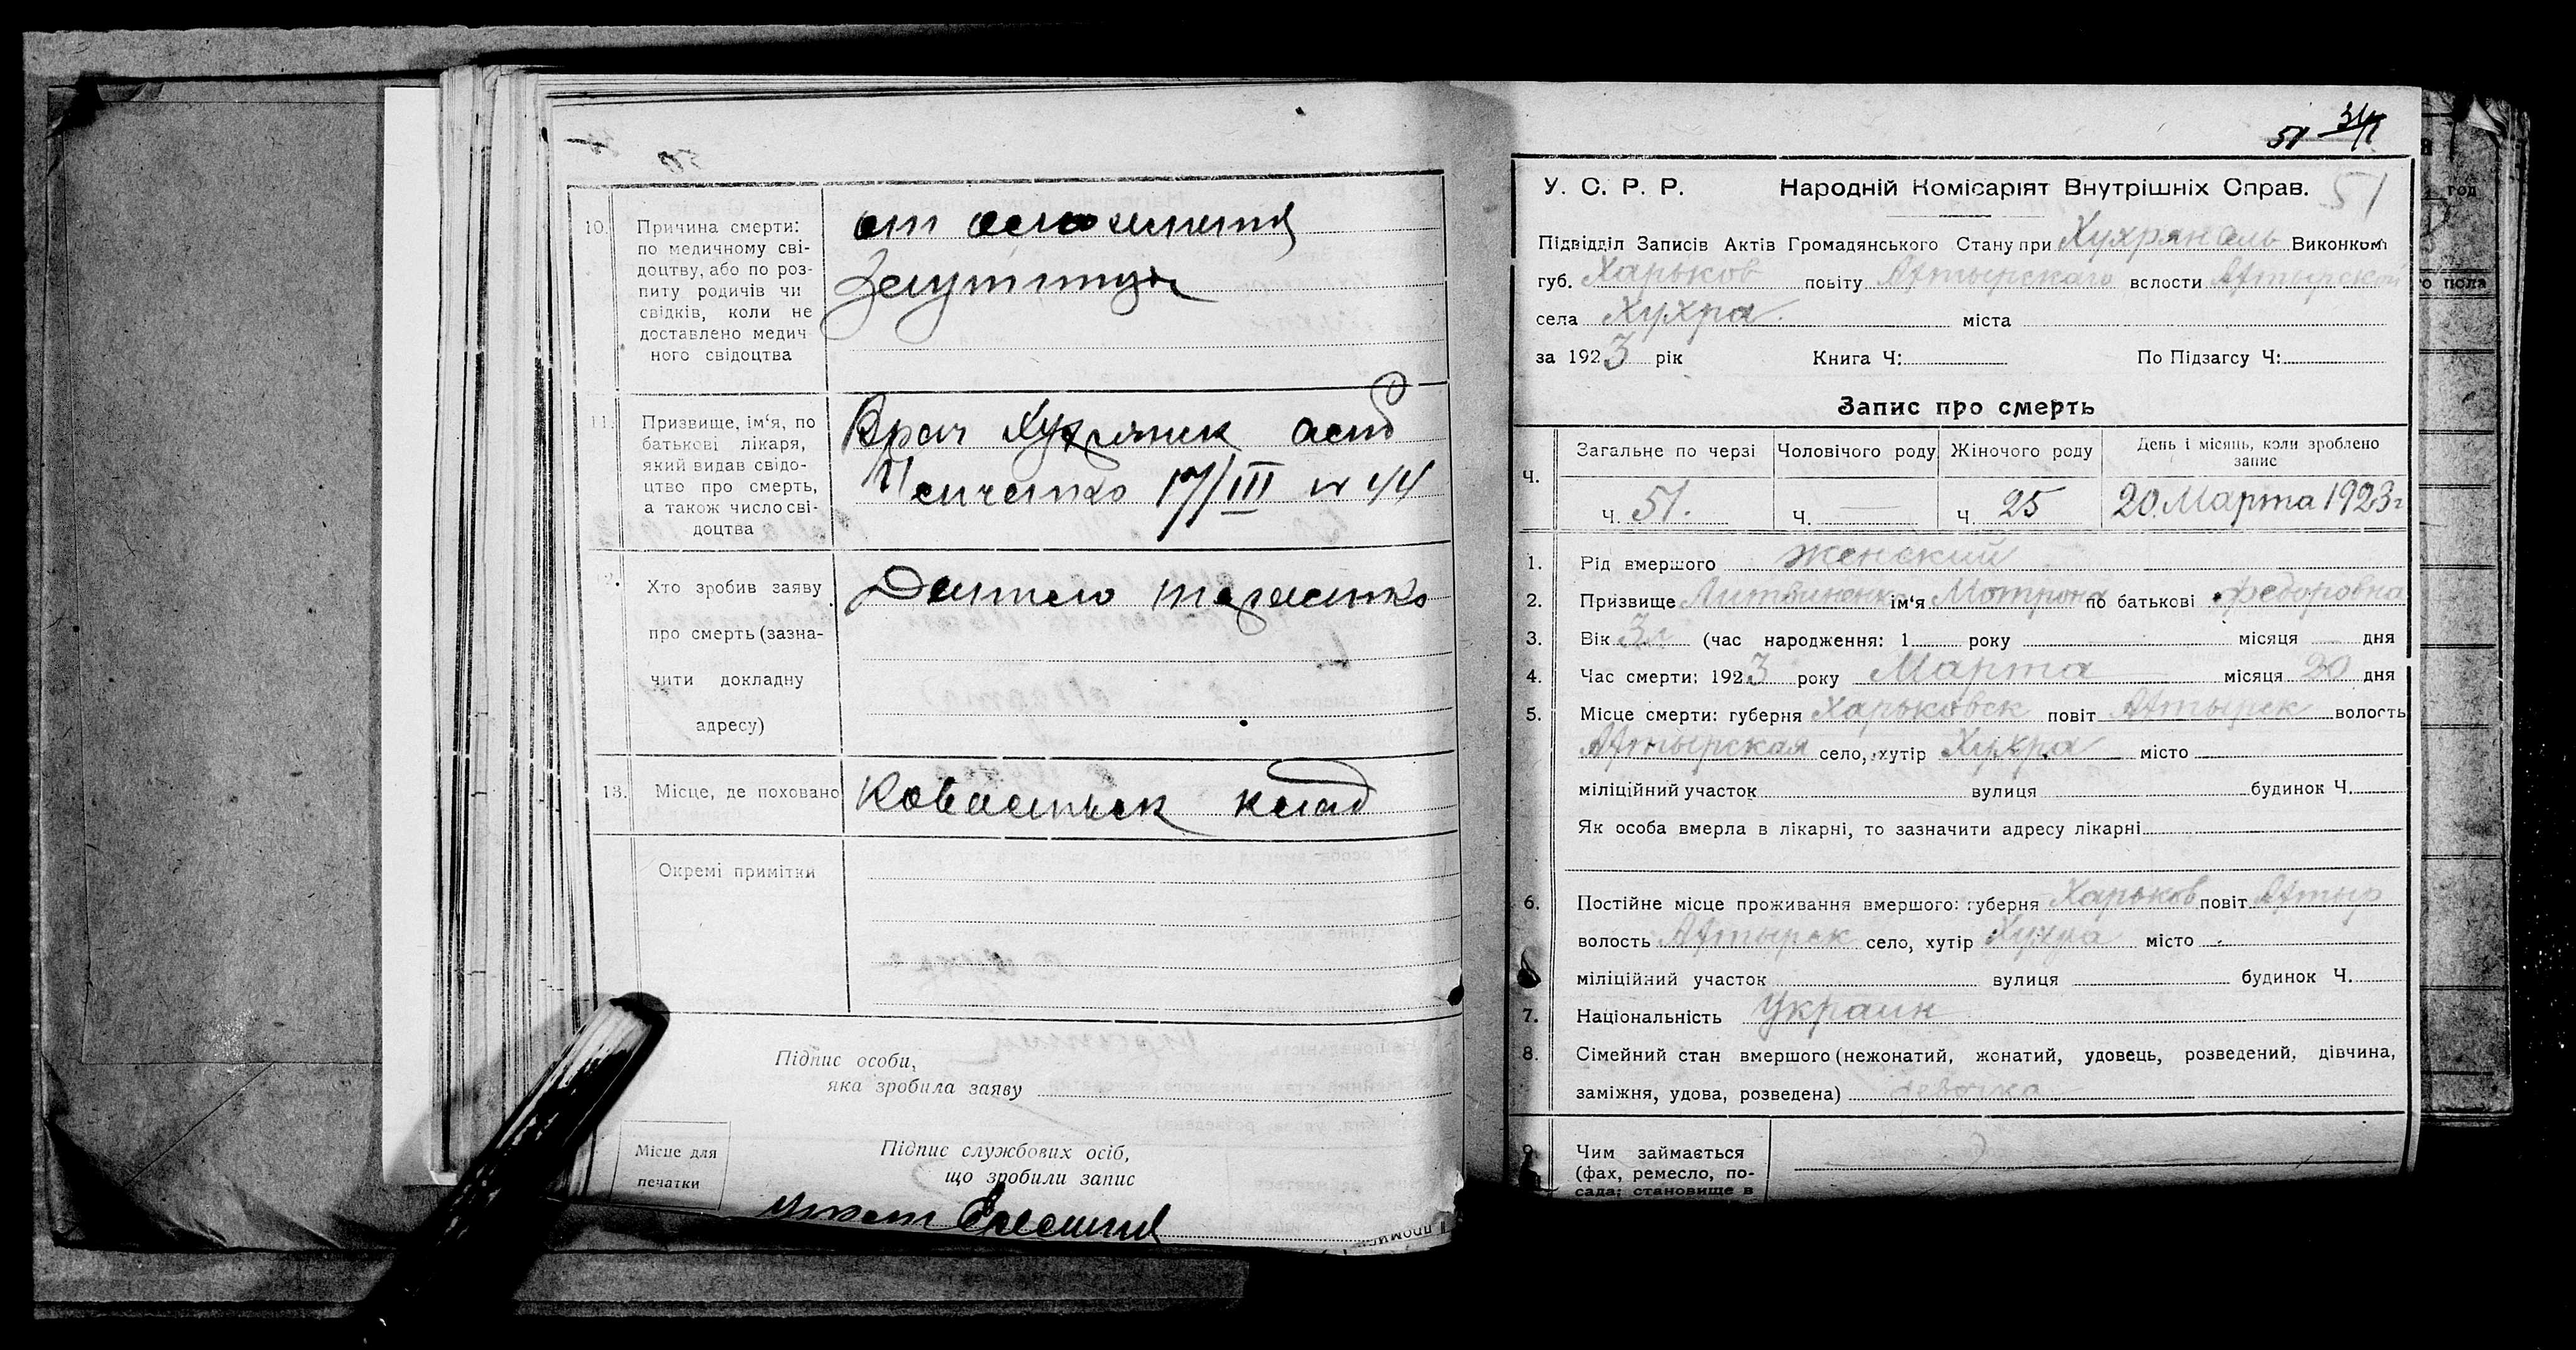 50
10. Причина смерти:
по медичному сві-
доцтву, або по роз-
питу родичів чи
свідків, коли не
доставлено медич
ного свідоцтва
от осложнения
11. Призвище, ім'я, по
батькові лікаря,
який видав свідо-
цтво про смерть,
а також число сві-
доцтва
Врач Хухрянск
17/III № 44
12. Хто зробив заяву
про смерть (зазна-
чити докладну
адресу)
Данило Тараненко
13. Місце, де поховано
клад
Окремі примітки
Підпис особи,
яка зробила заяву
Місце для
печатки
Підпис службових осіб,
що зробили запис
51
У. С. Р. Р. Народній Комісаріят Внутрішніх Справ. 51
Підвідділ Записів Актів Громадянського Стану при Хухрян сель Виконком
губ. Харьков повіту Ахтырскаго вслости Ахтырской
села Хухра міста
за 1923 рік Книга Ч: По Підзагсу Ч:
Запис про смерть
Ч. Загальне по черзі Чоловічого роду Жіночого роду День і місяць, коли зроблено
запис
Ч. 51. Ч. — Ч. 25 20 Марта 1923 г
1. Рід вмершого женский
2. Призвище Литвиненко ім'я Мотрона по батькові Федоровна
3. Вік 3 л (час народження: 1 року місяця дня
4. Час смерти: 1923 року Марта місяця 20 дня
5. Місце смерти: губерня Харьковск повіт Ахтырск волость
Ахтырская село, хутір Хухра місто
міліційний участок вулиця будинок Ч.
Як особа вмерла в лікарні, то зазначити адресу лікарні
6. Постійне місце проживання вмершого: губерня Харьков повіт Ахтыр
волость Ахтырск село, хутір Хухра місто
міліційний участок вулиця будинок Ч.
7. Національність Украин
8. Сімейний стан вмершого (нежонатий, жонатий, удовець, розведений, дівчина,
заміжня, удова, розведена) девочка
9. Чим займається
(фах, ремесло, по-
сада; становище в